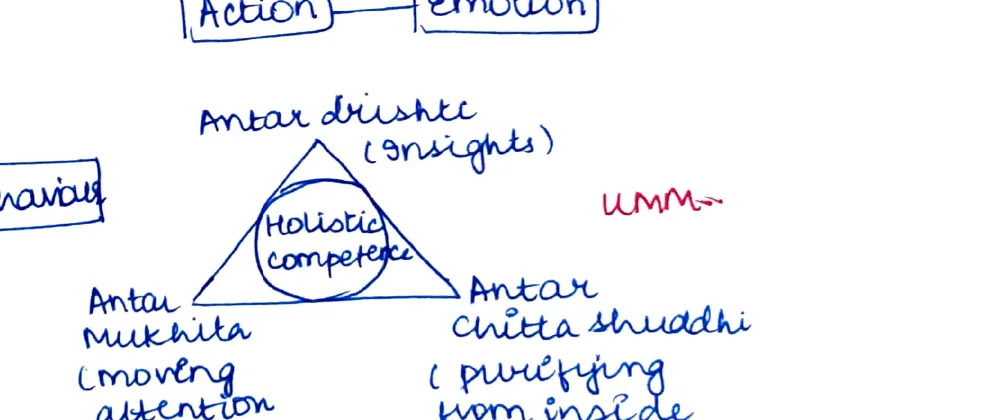 Action
emotion
Antar drishti
(Insights)
Holistic
competence
Antar
Mukhita
(moving
attention
Antar
Chitta shuddhi
( purifying
from inside